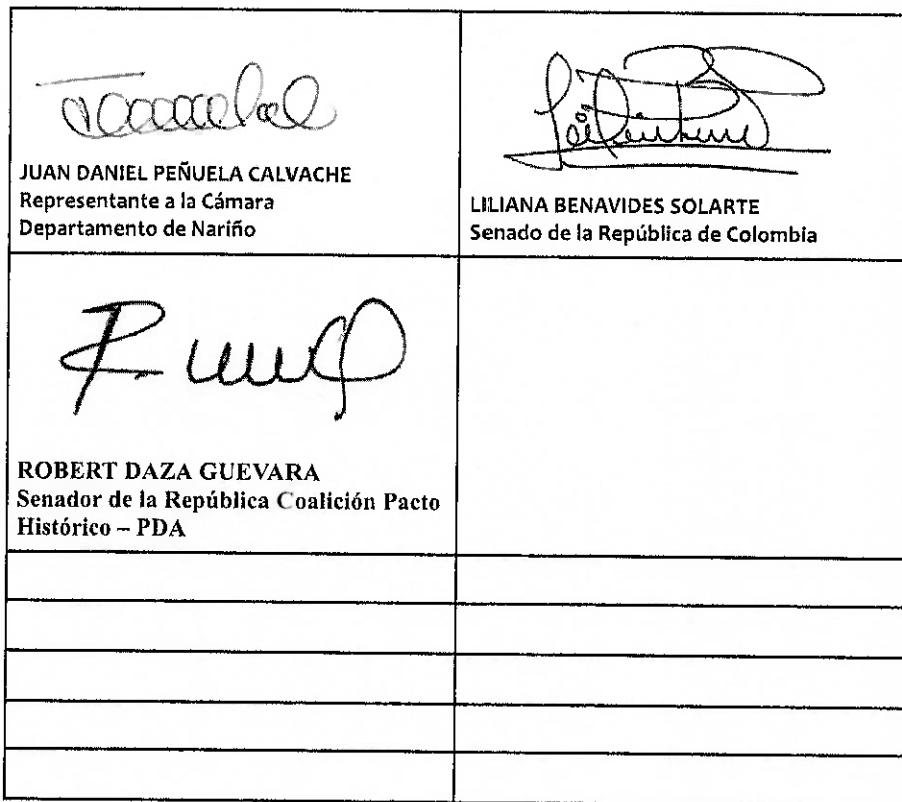 JUAN DANIEL PEÑUELA CALVACHE
Representante a la Cámara
Departamento de Nariño
LILIANA BENAVIDES SOLARTE
Senado de la República de Colombia
ROBERT DAZA GUEVARA
Senador de la República Coalición Pacto
Histórico – PDA